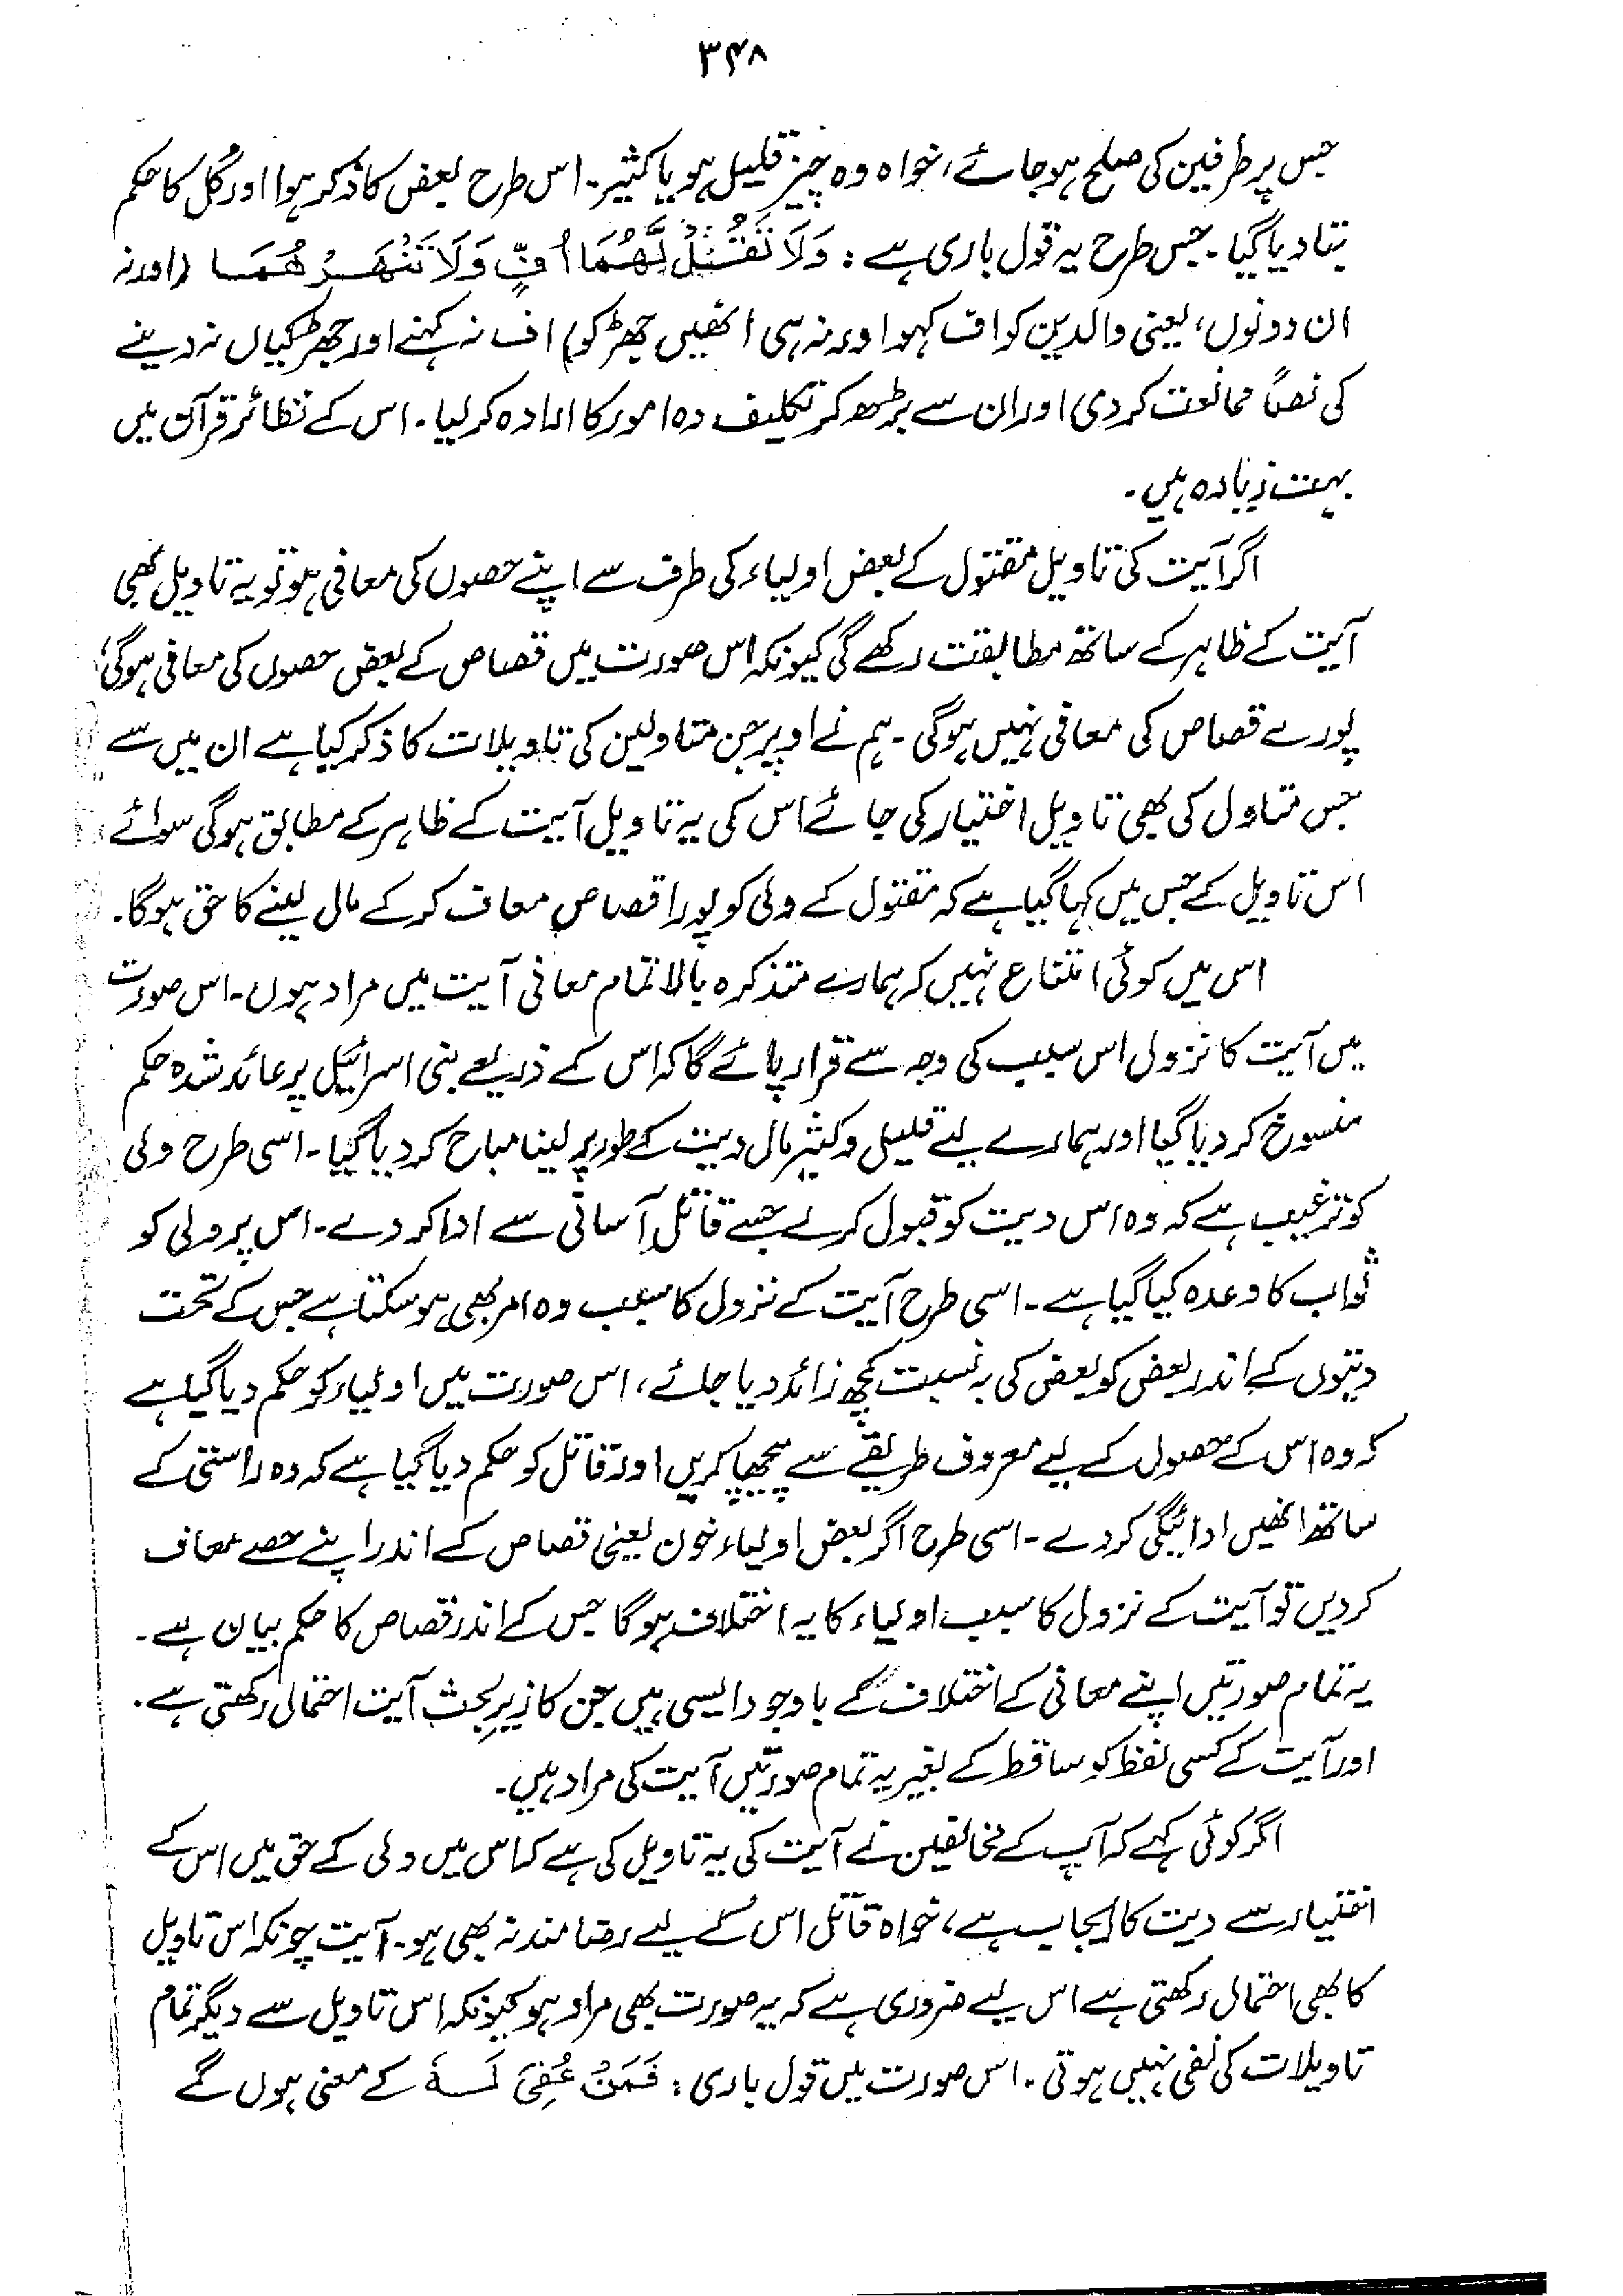 ۳۴۸
جس پر طرفین کی صلح ہوجائے، خواہ وہ چیز قلیل ہو یا کثیر۔ اس طرح بعض کا ذکر ہوا اور کُل کا حکم
بتا دیا گیا۔ جس طرح یہ قول باری ہے: وَلَا تَقُلْ لَّهُمَا أُفٍّ وَّلَا تَنْهَرْهُمَا (اور نہ
ان دونوں، یعنی والدین کو اف کہو اور نہ ہی انھیں جھڑکو) اف نہ کہنے اور جھڑکیاں نہ دینے
کی نصاً ممانعت کر دی اور ان سے بڑھ کر تکلیف دہ امور کا ارادہ کر لیا۔ اس کے نظائر قرآن میں
بہت زیادہ ہیں۔
اگر آیت کی تاویل مقتول کے بعض اولیاء کی طرف سے اپنے حصوں کی معافی ہو تو یہ تاویل بھی
آیت کے ظاہر کے ساتھ مطابقت رکھے گی کیونکہ اس صورت میں قصاص کے بعض حصوں کی معافی ہوگی،
پورے قصاص کی معافی نہیں ہوگی۔ ہم نے اوپر جن متاولین کی تاویلات کا ذکر کیا ہے ان میں سے
جس متاول کی بھی تاویل اختیار کی جائے اس کی یہ تاویل آیت کے ظاہر کے مطابق ہوگی سوائے
اس تاویل کے جس میں کہا گیا ہے کہ مقتول کے ولی کو پورا قصاص معاف کر کے مال لینے کا حق ہوگا۔
اس میں کوئی امتناع نہیں کہ ہمارے متذکرہ بالا تمام معانی آیت میں مراد ہوں۔ اس صورت
میں آیت کا نزول اس سبب کی وجہ سے قرار پائے گا کہ اس کے ذریعے بنی اسرائیل پر عائد شدہ حکم
منسوخ کر دیا گیا اور ہمارے لیے قلیل و کثیر مال دیت کے طور پر لینا مباح کر دیا گیا۔ اسی طرح ولی
کو ترغیب ہے کہ وہ اس دیت کو قبول کرلے جسے قاتل آسانی سے ادا کر دے۔ اس پر ولی کو
ثواب کا وعدہ کیا گیا ہے۔ اسی طرح آیت کے نزول کا سبب وہ امر بھی ہو سکتا ہے جس کے تحت
دیتوں کے اندر بعض کو بعض کی بہ نسبت کچھ زائد دیا جائے، اس صورت میں اولیاء کو حکم دیا گیا ہے
کہ وہ اس کے حصول کے لیے معروف طریقے سے پیچھا کریں اور قاتل کو حکم دیا گیا ہے کہ وہ راستی کے
ساتھ انھیں ادائیگی کر دے۔ اسی طرح اگر بعض اولیاء خون یعنی قصاص کے اندر اپنے حصے معاف
کر دیں تو آیت کے نزول کا سبب اولیاء کا یہ اختلاف ہوگا جس کے اندر قصاص کا حکم بیان ہے۔
یہ تمام صورتیں اپنے معانی کے اختلاف کے باوجود ایسی ہیں جن کا زیرِ بحث آیت احتمال رکھتی ہے۔
اور آیت کے کسی لفظ کو ساقط کے بغیر یہ تمام صورتیں آیت کی مراد ہیں۔
اگر کوئی کہے کہ آپ کے مخالفین نے آیت کی یہ تاویل کی ہے کہ اس میں ولی کے حق میں اس کے
اختیار سے دیت کا ایجاب ہے، خواہ قاتل اس کے لیے رضامند نہ بھی ہو۔ آیت چونکہ اس تاویل
کا بھی احتمال رکھتی ہے اس لیے ضروری ہے کہ یہ صورت بھی مراد ہو کیونکہ اس تاویل سے دیگر تمام
تاویلات کی نفی نہیں ہوتی۔ اس صورت میں قول باری: فَمَنْ عُفِیَ لَہٗ کے معنی ہوں گے